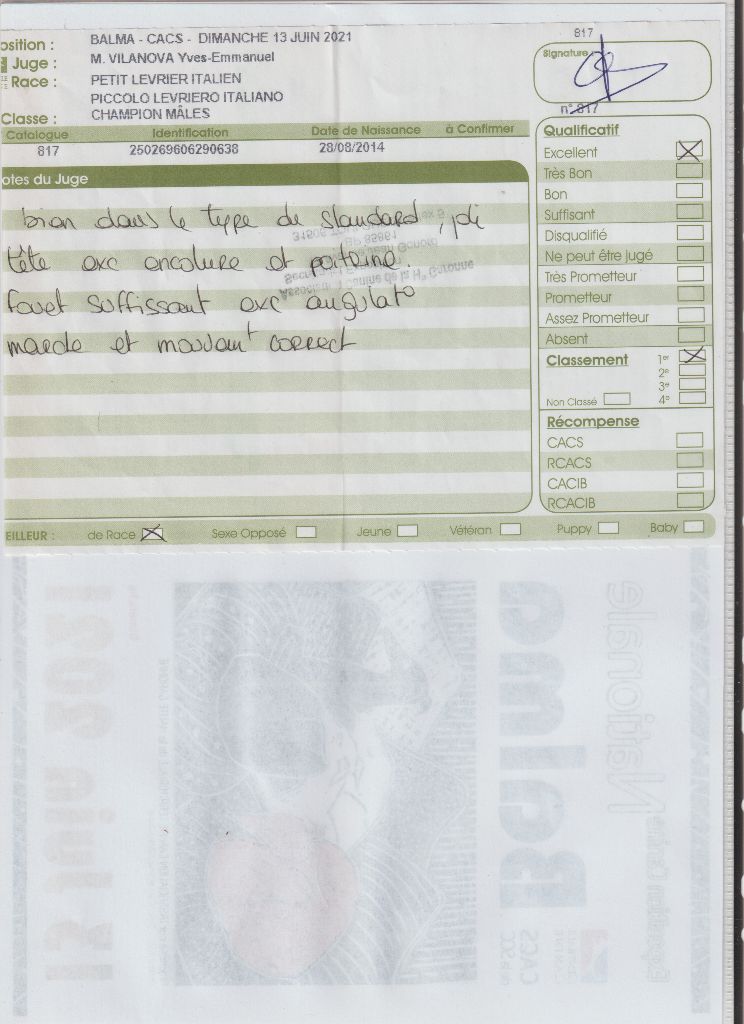 osition : BALMA - CACS - DIMANCHE 13 JUIN 2021
Juge : M. VILANOVA Yves-Emmanuel
Race : PETIT LEVRIER ITALIEN
PICCOLO LEVRIERO ITALIANO
Classe : CHAMPION MÂLES
Catalogue Identification Date de Naissance à Confirmer
817 250269606290638 28/08/2014
otes du Juge
bien dans le type du standard, joli
tête exc encolure et poitrine.
fouet suffissant exc angulato
marche et mouvant correct
817
Signature
n° 817
Qualificatif
Excellent
Très Bon
Bon
Suffisant
Disqualifié
Ne peut être jugé
Très Prometteur
Prometteur
Assez Prometteur
Absent
Classement 1er
2e
3e
Non Classé 4e
Récompense
CACS
RCACS
CACIB
RCACIB
EILLEUR : de Race Sexe Opposé Jeune Vétéran Puppy Baby
13 Juin 2021
Balma
Nationale
Exposition Canine
CACS